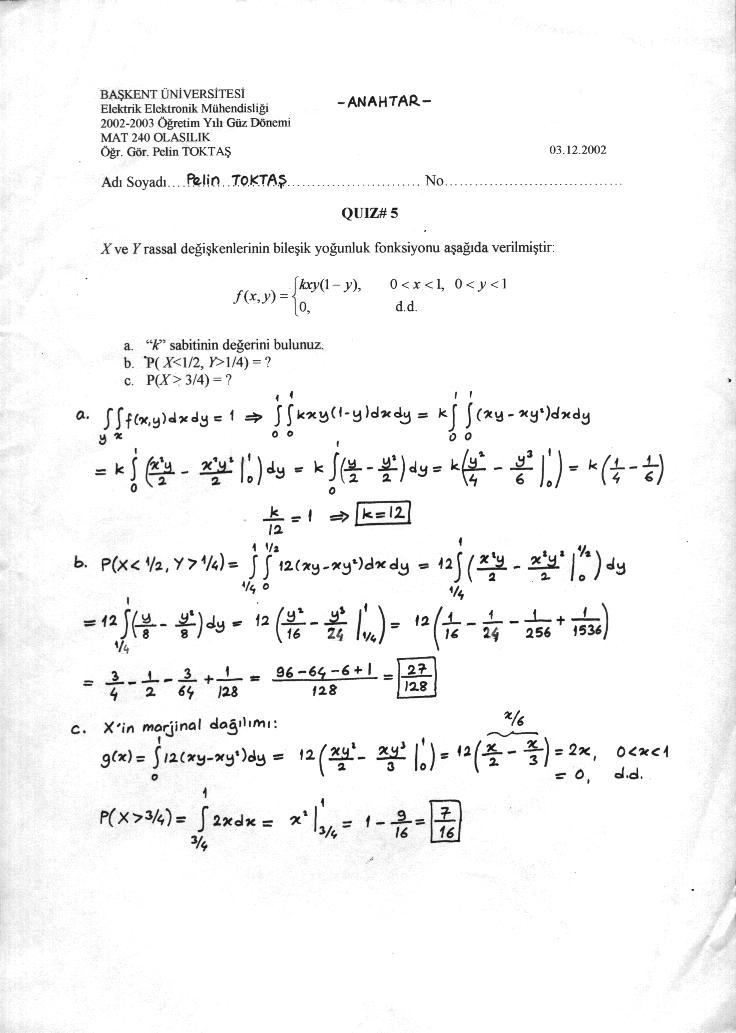 BAŞKENT ÜNİVERSİTESİ
Elektrik Elektronik Mühendisliği
-ANAHTAR-
2002-2003 Öğretim Yılı Güz Dönemi
MAT 240 OLASILIK
Öğr. Gör. Pelin TOKTAŞ 03.12.2002
Adı Soyadı....Pelin TOKTAŞ........................... No...................................
QUIZ# 5
X ve Y rassal değişkenlerinin bileşik yoğunluk fonksiyonu aşağıda verilmiştir:
f(x,y) = { kxy(1 – y), 0 < x < 1, 0 < y < 1
0, d.d.
a. “k” sabitinin değerini bulunuz.
b. P( X<1/2, Y>1/4) = ?
c. P(X > 3/4) = ?
a. ∫_y ∫_x f(x,y)dxdy = 1 ⇒ ∫_0^1 ∫_0^1 kxy(1-y)dxdy = k ∫_0^1 ∫_0^1 (xy - xy²)dxdy
= k ∫_0^1 (x²y/2 - x²y²/2 |_0^1) dy = k ∫_0^1 (y/2 - y²/2) dy = k(y²/4 - y³/6 |_0^1) = k (1/4 - 1/6)
k/12 = 1 ⇒ k=12
b. P(X< 1/2, Y > 1/4) = ∫_1/4^1 ∫_0^1/2 12(xy-xy²)dxdy = 12 ∫_1/4^1 (x²y/2 - x²y²/2 |_0^1/2) dy
= 12 ∫_1/4^1 (y/8 - y²/8) dy = 12 (y²/16 - y³/24 |_1/4^1) = 12 (1/16 - 1/24 - 1/256 + 1/1536)
= 3/4 - 1/2 - 3/64 + 1/128 = 96-64-6+1/128 = 27/128
c. X'in marjinal dağılımı:
x/6
g(x) = ∫_0^1 12(xy-xy²)dy = 12 (xy²/2 - xy³/3 |_0^1) = 12 (x/2 - x/3) = 2x, 0<x<1
= 0, d.d.
P(X >3/4) = ∫_3/4^1 2xdx = x² |_3/4^1 = 1 - 9/16 = 7/16